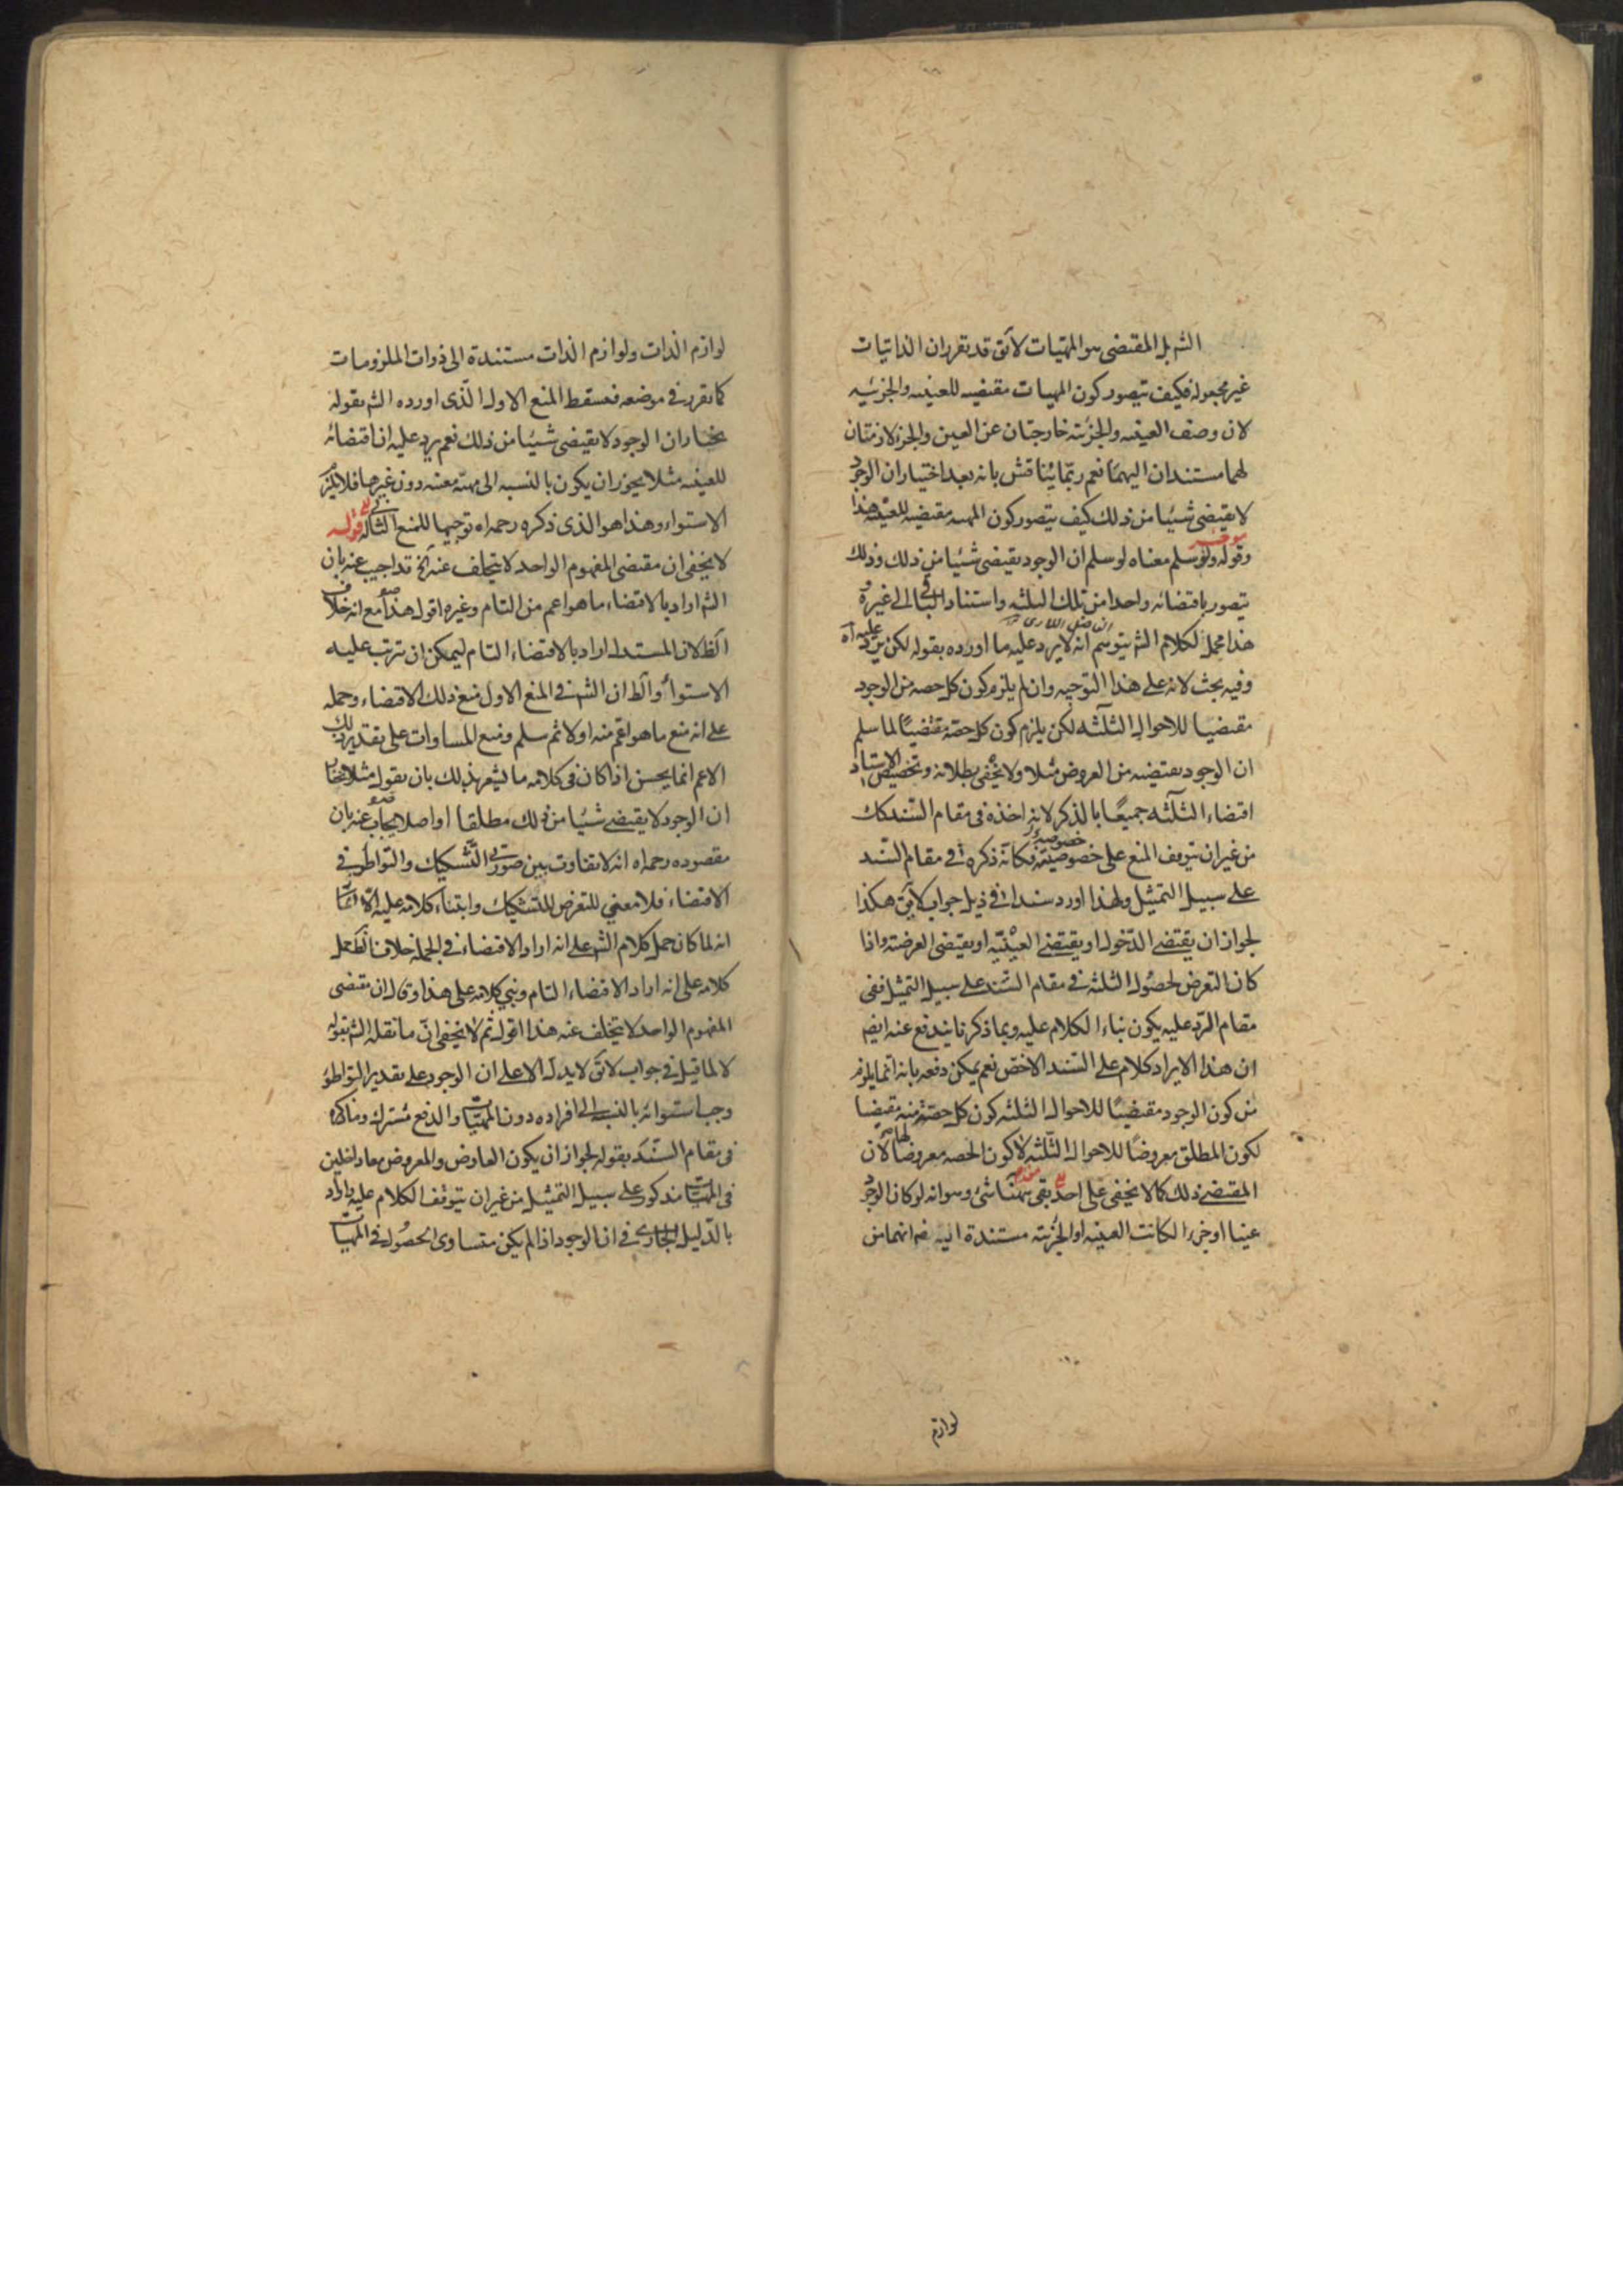 الشه بل المقتضى هو المهيات لا يق قد تقرر ان الذاتيات
غير مجعولة فكيف يتصور كون المهيات مقتضيه للعينيه والجزئيه
لان وصف العينيه والجزئية خارجتان عن العين والجزء لازمتان
لهما مستندان اليهما نعم ربّما يُناقش بانه بعد اختيار ان الوجود
لا يقتضى شيئا من ذلك كيف يتصور كون المهيه مقتضيه للعينيه هذا
وقوله ولو سلم معناه لو سلم ان الوجود يقتضى شيئا من ذلك وذلك
يتصور باقتضائه واحدا من تلك الثلثه واستناد الباقى الى غيره
هذا محمل لكلام الشه يتوسم انه لا يرد عليه ما اورده بقوله لكن يرد عليه اه
وفيه بحث لانه على هذا التوجيه وان لم يلزم كون كل حصه من الوجود
مقتضيا للاحوال الثلثه لكن يلزم كون كل حصّة مقتضيًا لما سلم
ان الوجود يقتضيه من العروض مثلا ولا يخفى بطلانه وتخصيص الاستناد
اقتضاء الثلثه جميعًا بالذكر لانه اخذه فى مقام السّند كك
من غير ان يتوقف المنع على خصوصيته فكانّه ذكره فى مقام السّند
على سبيل التمثيل ولهذا اورد سندا فى ذيل جواب لا يق هكذا
لجواز ان يقتضى الدّخول او يقتضى العينيّه او يقتضى العرضية واذا
كان التعرض لحصُول الثلثه فى مقام السّند على سبيل التمثيل ففى
مقام الرّد عليه يكون بناء الكلام عليه وبما ذكرنا يندفع عنه ايضه
ان هذا الايراد كلام على السّند الاخص نعم يمكن دفعه بانه انّما يلزم
من كون الوجود مقتضيًا للاحوال الثلثه كون كل حصّة منه مقتضيا
لكون المطلق معروضًا للاحوال الثّلثه لا كون الحصه معروضا لها لان
المقتضى ذلك كما لا يخفى على احد بقى ههنا شئ وهو انه لو كان الوجود
عينا او جزءا لكانت العينيه او الجزئية مستندة اليه ضه انهما من
لوازم
لوازم الذات ولوازم الذات مستندة الى ذوات الملزومات
كما تقرر فى موضعه فسقط المنع الاول الّذى اورده الشه بقوله
يختار ان الوجود لا يقتضى شيئا من ذلك نعم يرد عليه ان اقتضائه
للعينيه مثلا يجوز ان يكون بالنسبه الى مهيّة معينه دون غيرها فلا يلزم
الاستواء وهذا هو الذى ذكره رحمه اه توجيها للمنع الثانى قوله
لا يخفى ان مقتضى المفهوم الواحد لا يتخلف عنه الخ قد اجيب عنه بان
الشه اراد بالاقتضاء ما هو اعم من التام وغيره اقول هذا مع انه خلاف
الظ لان المستدل اراد بالاقتضاء التام ليمكن ان يترتب عليه
الاستواء والظ ان الشه فى المنع الاول منع ذلك الاقتضاء وحمله
على انه منع ما هو اعم منه اولا ثم سلم ومنع المساوات على تقدير ذلك
الاعم انما يحسن اذا كان فى كلامه ما يشعر بذلك بان يقول مثلا نختار
ان الوجود لا يقتضى شيئا من ذلك مطلقا او اصلا يجاب عنه بان
مقصوده رحمه اه انه لا تفاوت بين صورتى التّشكيك والتواطؤ فى
الاقتضاء فلا معنى للتعرض للتشكيك وابتناء كلامه عليه
انه لما كان حمل كلام الشه على انه اراد الاقتضاء فى الجمله خلاف الظ حمل
كلامه على انه اراد الاقتضاء التام وبنى كلامه على هذا وقال ان مقتضى
المفهوم الواحد لا يتخلف عنه هذا اقول ثم لا يخفى انّ ما نقله الشه بقوله
لا لما قيل فى جواب لا يق لا يدل الا على ان الوجود على تقدير التواطؤ
وجب استوائه بالنسبه الى افراده دون المهيّات والدفع مشترك وما ذكره
فى مقام السّند بقوله لجواز ان يكون العارض والمعروض معا داخلين
فى المهيّات مذكور على سبيل التمثيل من غير ان يتوقف الكلام عليه واراد
بالدّليل الجارى فى ان الوجود اذا لم يكن متساوى الحصُول فى المهيات